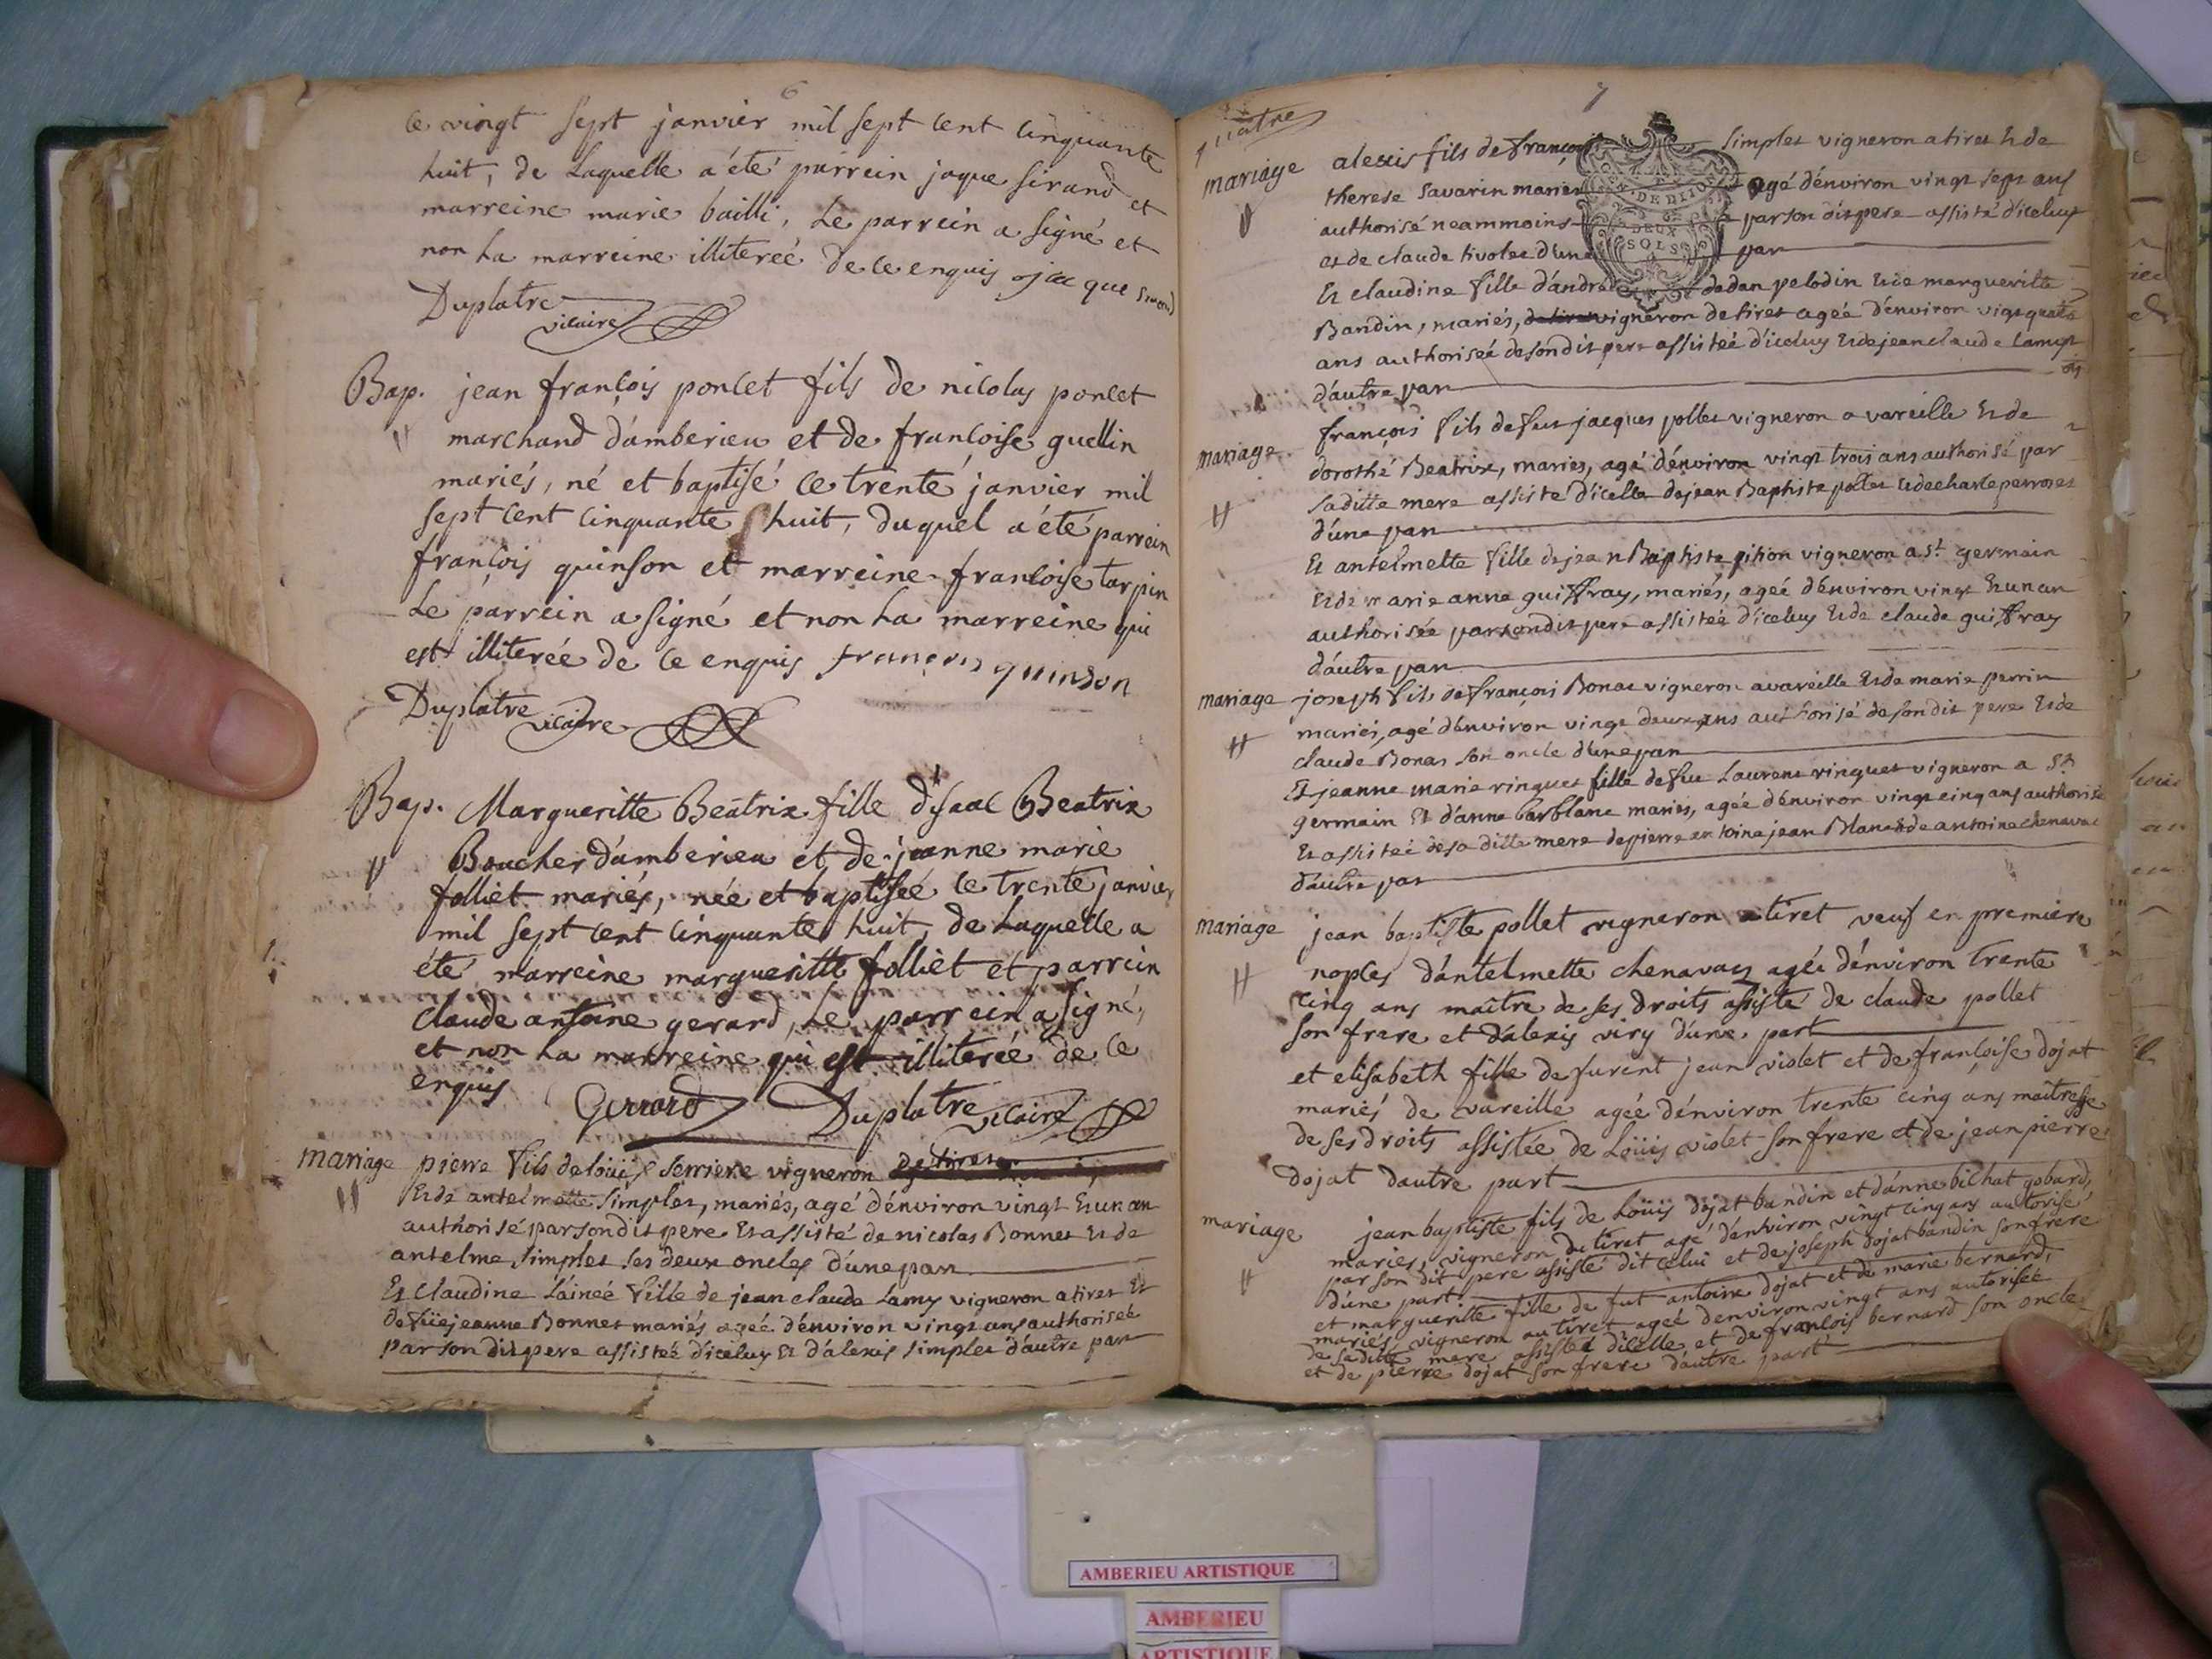 6
ce vingt sept janvier mil sept cent cinquante
huit, de Laquelle a été parrein jaque sirand et
marreine marie bailli, Le parrein a signé et
non La marreine illitereé de ce enquis jacque
Duplatre
vicaire
Bap. jean françois poncet fils de nicolas poncet
marchand d'amberieu et de françoise guellin
mariés, né et baptisé ce trente janvier mil
sept cent cinquante huit, duquel a été parrein
françois quinson et marreine francoise tarpin
Le parrein a signé et non La marreine qui
est illitereé de ce enquis françois quinson
Duplatre vicaire
Bap. Margueritte Beatrix fille d'isaac Beatrix
Boucher d'amberieu et de jeanne marie
folliet mariés, née et baptisée ce trente janvier
mil sept cent cinquante huit, de Laquelle a
été marreine margueritte folliet et parrein
claude antoine gerard, Le parrein a signé,
et non La marreine qui est illitereé de ce
enquis Gerrard Duplatre vicaire
mariage pierre fils de loüis serriere vigneron de tiret
Et de antelmette simplet, mariés, agé d'environ vingt Et un an
authorisé par son dit pere Et assisté de nicolas Bonnet Et de
antelme simplet ses deux oncles d'une part
Et claudine L'ainée fille de jean claude Lamy vigneron a tiret Et
de füe jeanne Bonnet mariés ageé d'environ vingt ans authoriseé
par son dit pere assisteé d'iceluy Et d'alexis simplet d'autre part
7
quatre
mariage alexis fils de françois simplet vigneron a tiret Et de
therese savarin mariés agé d'environ vingt sept ans
authorisé neammoins par son dit pere assisté d'iceluy
et de claude tivolet d'une part
GEN DE DIJON
DEUX
SOLS
Et claudine fille d'andré dedan pelodin Et de margueritte
Bandin, mariés, vigneron de tiret ageé d'environ vigt quatre
ans authoriseé de son dit pere assisteé d'iceluy Et de jean claude Lamy
d'autre part
mariage françois fils de feu jacques pollet vigneron a vareille Et de
dorothé Beatrix, mariés, agé d'environ vingt trois ans authorisé par
sa ditte mere assisté d'icelle de jean Baptiste pollet Et de charle perroset
d'une part
Et antelmette fille de jean Baptiste pition vigneron a St germain
Et de marie anne guiffray, mariés, ageé d'environ vingt Et un an
authorisée par son dit pere assisteé d'iceluy Et de claude guiffray
d'autre part
mariage joseph fils de françois Bonas vigneron a vareille Et de marie perrin
mariés, agé d'environ vingt deux ans authorisé de son dit pere Et de
claude Bonas son oncle d'une part
Et jeanne marie ringuet fille de feu Laurent ringuet vigneron a St
germain Et d'anne barblanc mariés, ageé d'environ vingt cinq ans authorisé
Et assisteé de sa ditte mere de pierre antoine jean Blanc Et de antoine chenavat
d'autre part
mariage jean baptiste pollet vigneron a tiret veuf en premiere
noples d'antelmette chenavaz ageé d'environ trente
cinq ans maître de ses droits assisté de claude pollet
son frere et d'alexis viry d'une part
et elisabeth fille de furent jean violet et de françoise dojat
mariés de vareille ageé d'environ trente cinq ans maîtresse
de ses droits assistée de Loüis violet son frere et de jean pierre
dojat d'autre part
mariage jean baptiste fils de Loüis dojat bandin et d'anne bilhat gobard,
mariés, vigneron du tiret agé d'environ vingt cinq ans autorisé
par son dit pere assisté dit celui et de joseph dojat bandin son frere
d'une part.
et margueritte fille de fut antoine dojat et de marie bernard,
mariés, vigneron au tiret ageé d'environ vingt ans autorisée
de sa ditte mere assistée d'icelle et de françois bernard son oncle
et de pierre dojat son frere d'autre part
AMBERIEU ARTISTIQUE
AMBERIEU
ARTISTIQUE